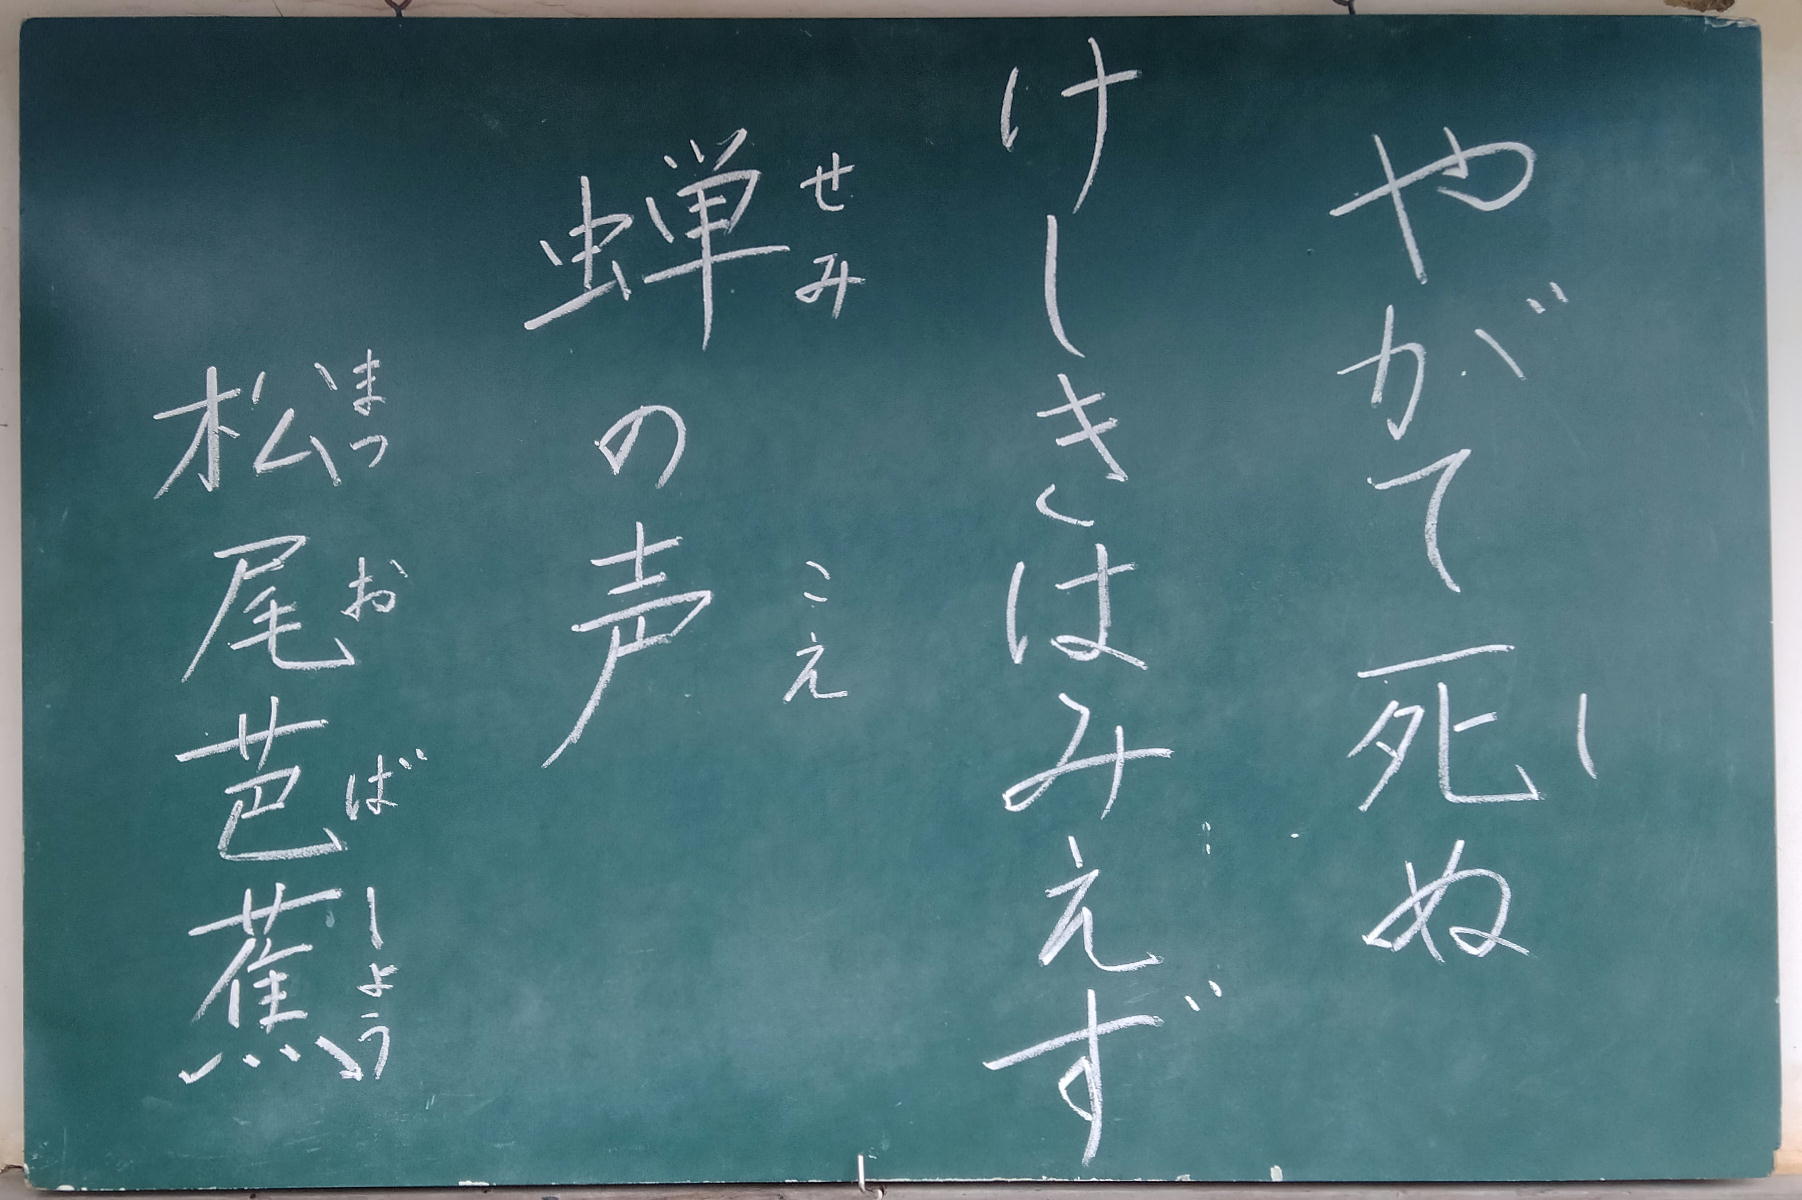 やがて死ぬ
し
けしきはみえず
蝉の声
せみ こえ
松尾芭蕉
まつお ばしょう